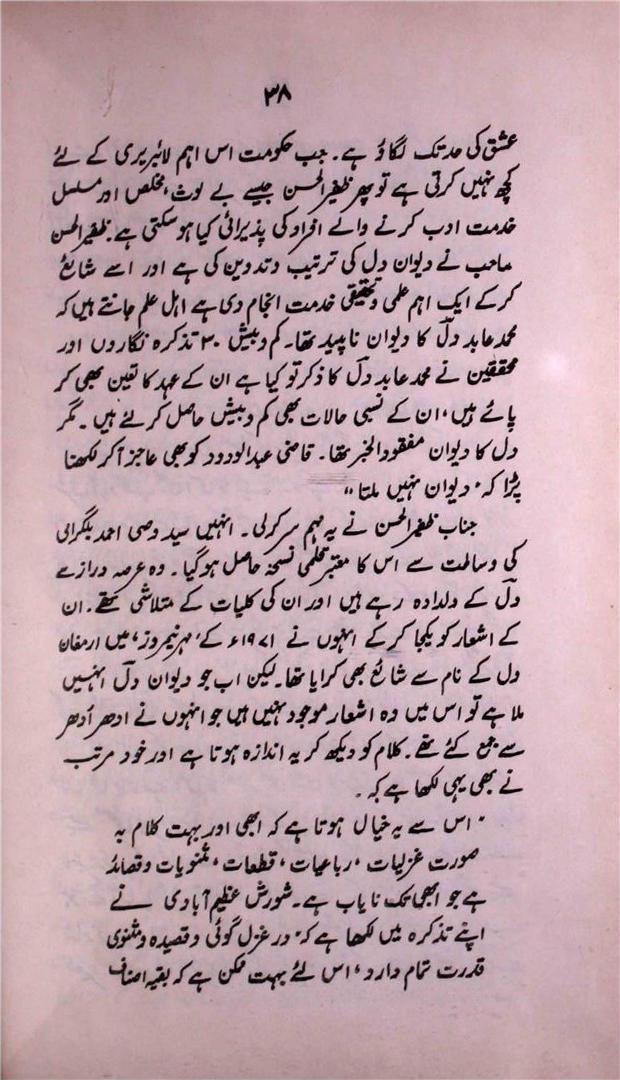 ۳۸
عشق کی حد تک لگاؤ ہے۔ جب حکومت اس اہم لائبریری کے لئے
کچھ نہیں کرتی ہے تو پھر ظفیر الحسن جیسے بے لوث، مخلص اور مسلسل
خدمت ادب کرنے والے افراد کی پذیرائی کیا ہو سکتی ہے۔ ظفیر الحسن
صاحب نے دیوان دل کی ترتیب و تدوین کی ہے اور اسے شائع
کر کے ایک اہم علمی و تحقیقی خدمت انجام دی ہے اہل علم جانتے ہیں کہ
محمد عابد دلؔ کا دیوان ناپید تھا۔ کم و بیش ۳۰ تذکرہ نگاروں اور
محققین نے محمد عابد دلؔ کا ذکر تو کیا ہے ان کے عہد کا تعین بھی کر
پائے ہیں، ان کے نسبی حالات بھی کم و بیش حاصل کر لئے ہیں۔ مگر
دل کا دیوان مفقود الخبر تھا۔ قاضی عبدالودود کو بھی عاجز آ کر لکھنا
پڑا کہ " دیوان نہیں ملتا "
جناب ظفیر الحسن نے یہ مہم سر کر لی۔ انہیں سید وصی احمد بلگرامی
کی وساطت سے اس کا معتبر قلمی نسخہ حاصل ہو گیا۔ وہ عرصہ دراز سے
دلؔ کے دلدادہ رہے ہیں اور ان کی کلیات کے متلاشی تھے۔ ان
کے اشعار کو یکجا کر کے انہوں نے ۱۹۷۱ء کے ' مہر نیمروز ' میں ارمغان
دل کے نام سے شائع بھی کرایا تھا۔ لیکن اب جو دیوان دلؔ انہیں
ملا ہے تو اس میں وہ اشعار موجود نہیں ہیں جو انہوں نے ادھر اُدھر
سے جمع کئے تھے۔ کلام کو دیکھ کر یہ اندازہ ہوتا ہے اور خود مرتب
نے بھی یہی لکھا ہے کہ۔
" اس سے یہ خیال ہوتا ہے کہ ابھی اور بہت کلام بہ
صورت غزلیات، رباعیات، قطعات، مثنویات و قصائد
ہے جو ابھی تک نایاب ہے۔ شورش عظیم آبادی نے
اپنے تذکرہ میں لکھا ہے کہ " در غزل گوئی و قصیدہ و مثنوی
قدرت تمام دارد، اس لئے بہت ممکن ہے کہ بقیہ اصناف